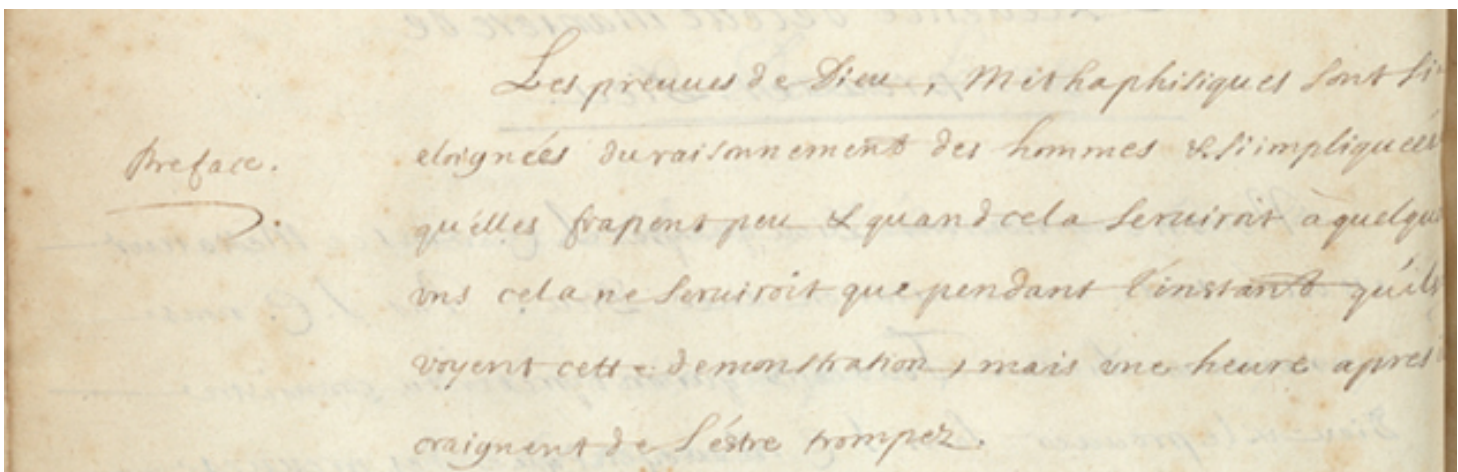 Les preuues de Dieu, Methaphisiques sont si
Preface.
eloignées du raisonnement des hommes & si impliquées
qu'elles frapent peu & quand cela seruiroit à quelque
vns cela ne seruiroit que pendant l'instant qu'ils
voyent cette demonstration, mais vne heure apres
craignent de s'éstre trompez.